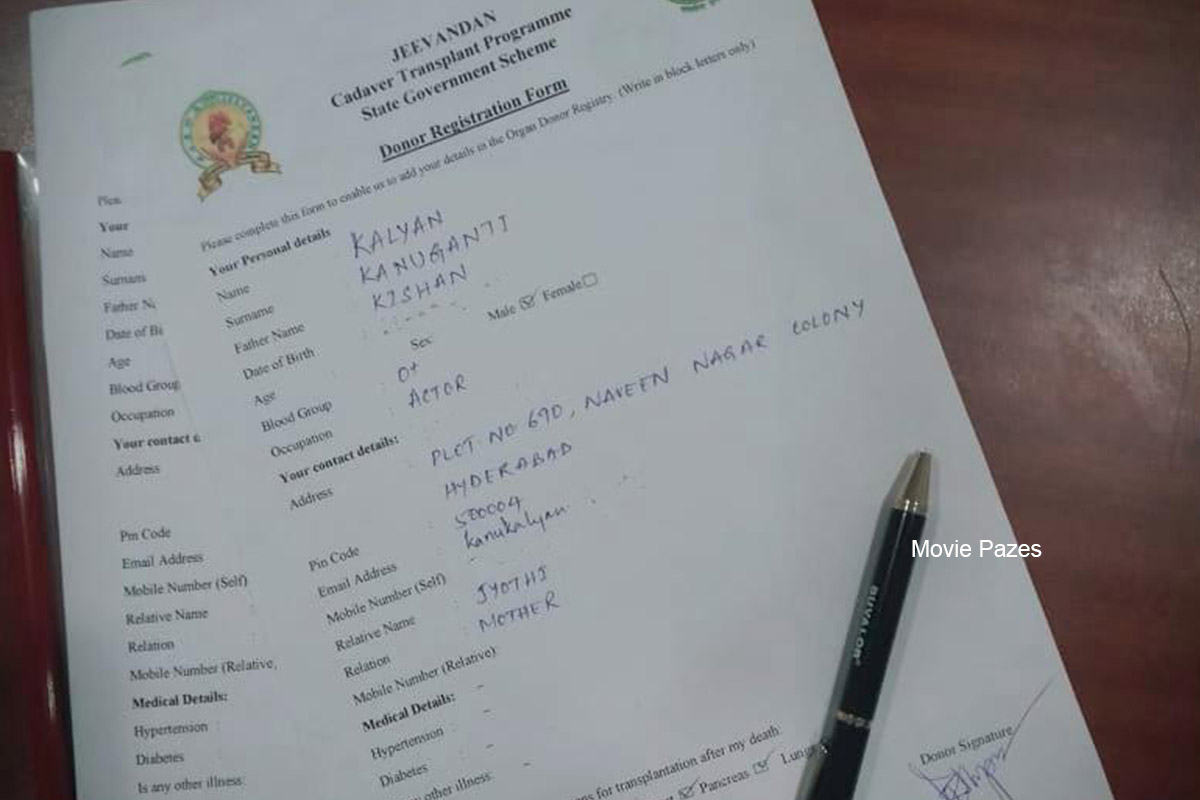 JEEVANDAN
Cadaver Transplant Programme
State Government Scheme
Donor Registration Form
Please complete this form to enable us to add your details in the Organ Donor Registry. (Write in block letters only)
Your Personal details
Name KALYAN
Surname KANUGANTI
Father Name KISHAN
Date of Birth
Age Sex Male Female
Blood Group O+
Occupation ACTOR
Your contact details:
Address : PLOT NO 690, NAVEEN NAGAR COLONY
HYDERABAD
Pin Code : 500004
Email Address : kanukalyan
Mobile Number (Self)
Relative Name : JYOTHI
Relation : MOTHER
Mobile Number (Relative)
Medical Details:
Hypertension : -
Diabetes : -
other illness: -
for transplantation after my death:
Pancreas Lungs
Donor Signature
Your
Name
Surnam
Father Na
Date of Bi
Age
Blood Group
Occupation
Your contact
Address
Pin Code
Email Address
Mobile Number (Self)
Relative Name
Relation
Mobile Number (Relative,
Medical Details:
Hypertension
Diabetes
Is any other illness:
BUVALOP
Movie Pazes